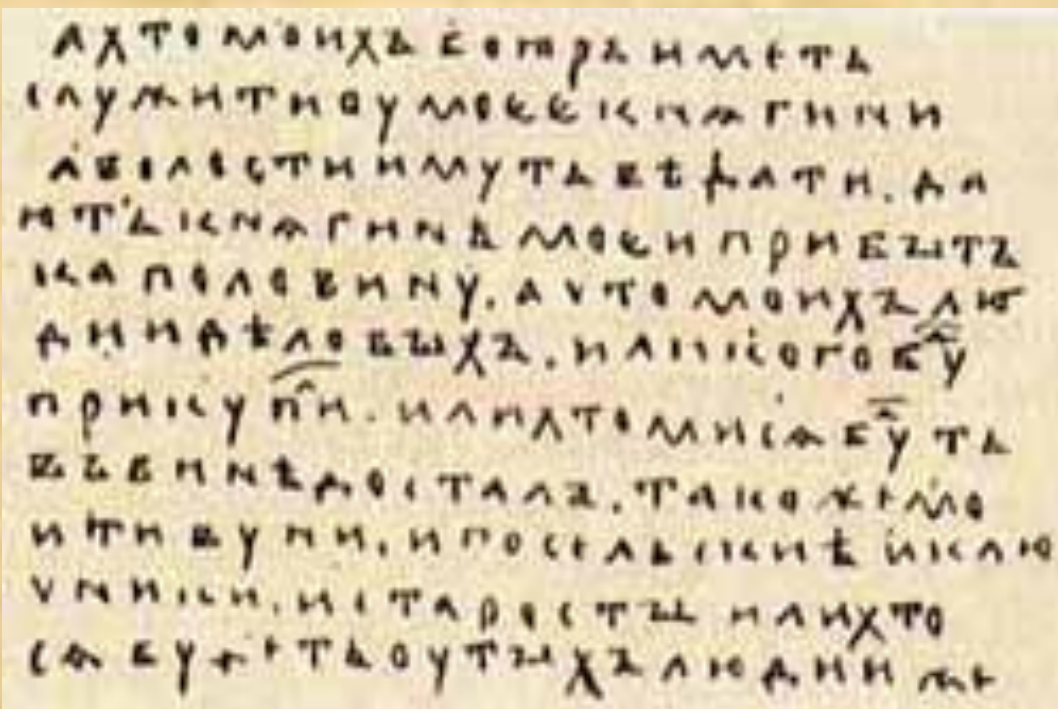 а хто моихъ боꙗръ иметь
служити оу моее кнѧгини
а волости имуть вѣдати. да
ить кнѧгинѣ моеи прибытъ
ка половину. а что моихъ лю
дии дѣловыхъ. или кого бу
прикупи. или хто ми сѧ буть
въ винѣ досталъ. такоже мо
и тивуни. и посельскиѣ и клю
чники. и старосты или хто
сѧ будеть оу тыхъ людии же